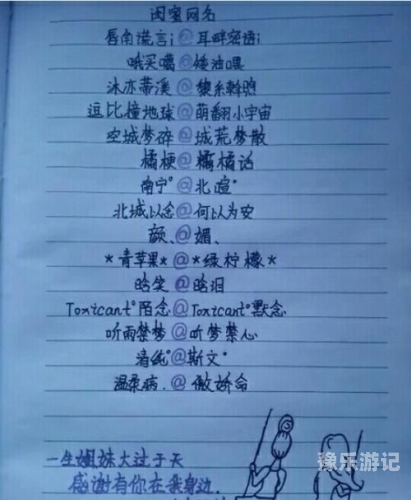 闺蜜网名
唇角谎言i@耳畔密语i
哦买噶@矮油喂
沐亦蒂溪@黎糸
逗比撞地球@萌翻小宇宙
空城梦碎@城荒梦散
橘梗@橘话
南宁°@北喧°
北城以念@何以为安
颜、@媚、
*青苹果*@*绿柠檬*
晗笑@晗泪
Toxicant°陌念@Toxicant°默念
听雨禁梦@听梦禁心
清纯°@斯文°
温柔病.@傲娇命
一生姐妹大过于天
感谢有你在我身边.
豫乐游记